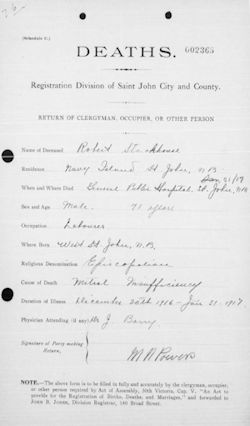 (Schedule C.)
DEATHS.
002365
Registration Division of Saint John City and County.
RETURN OF CLERGYMAN, OCCUPIER, OR OTHER PERSON
Name of Deceased Robert Stackhouse
Residence Navy Island St John, N.B.
When and Where Died General Public Hospital, St. John, N.B. Jan 21/17
Sex and Age Male. 71 years
Occupation Labourer
Where Born West St. John, N.B.
Religious Denomination Episcopalian
Cause of Death Mitral Insufficiency
Duration of Illness December 30th 1916 - Jan 21. 1917.
Physician Attending (if any) Dr J. Barry
Signature of Party making Return, M N Powers
NOTE.—The above form is to be filled in fully and accurately by the clergyman, occupier,
or other person required by Act of Assembly, 50th Victoria, Cap. V. "An Act to
provide for the Registration of Births, Deaths, and Marriages," and forwarded to
JOHN B. JONES, Division Registrar, 140 Broad Street.